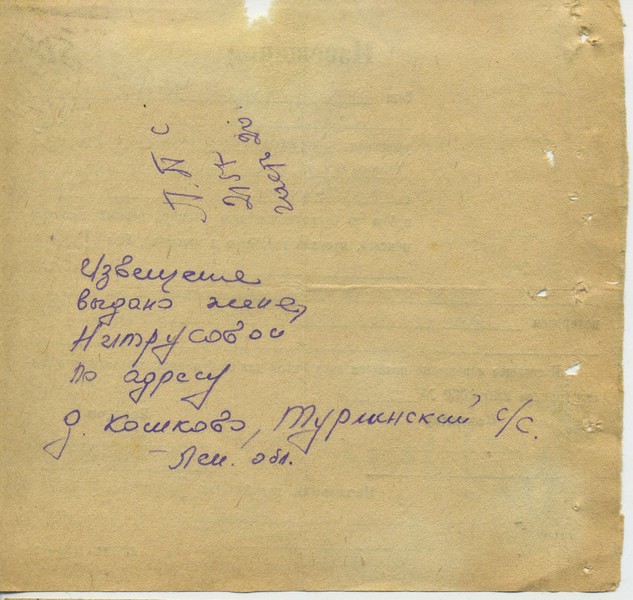 П.П с
2157
часть
Извещение
выдано жене,
Нитрусовой
по адресу
д. Кошково, Турминский с/с.
Лен. обл.